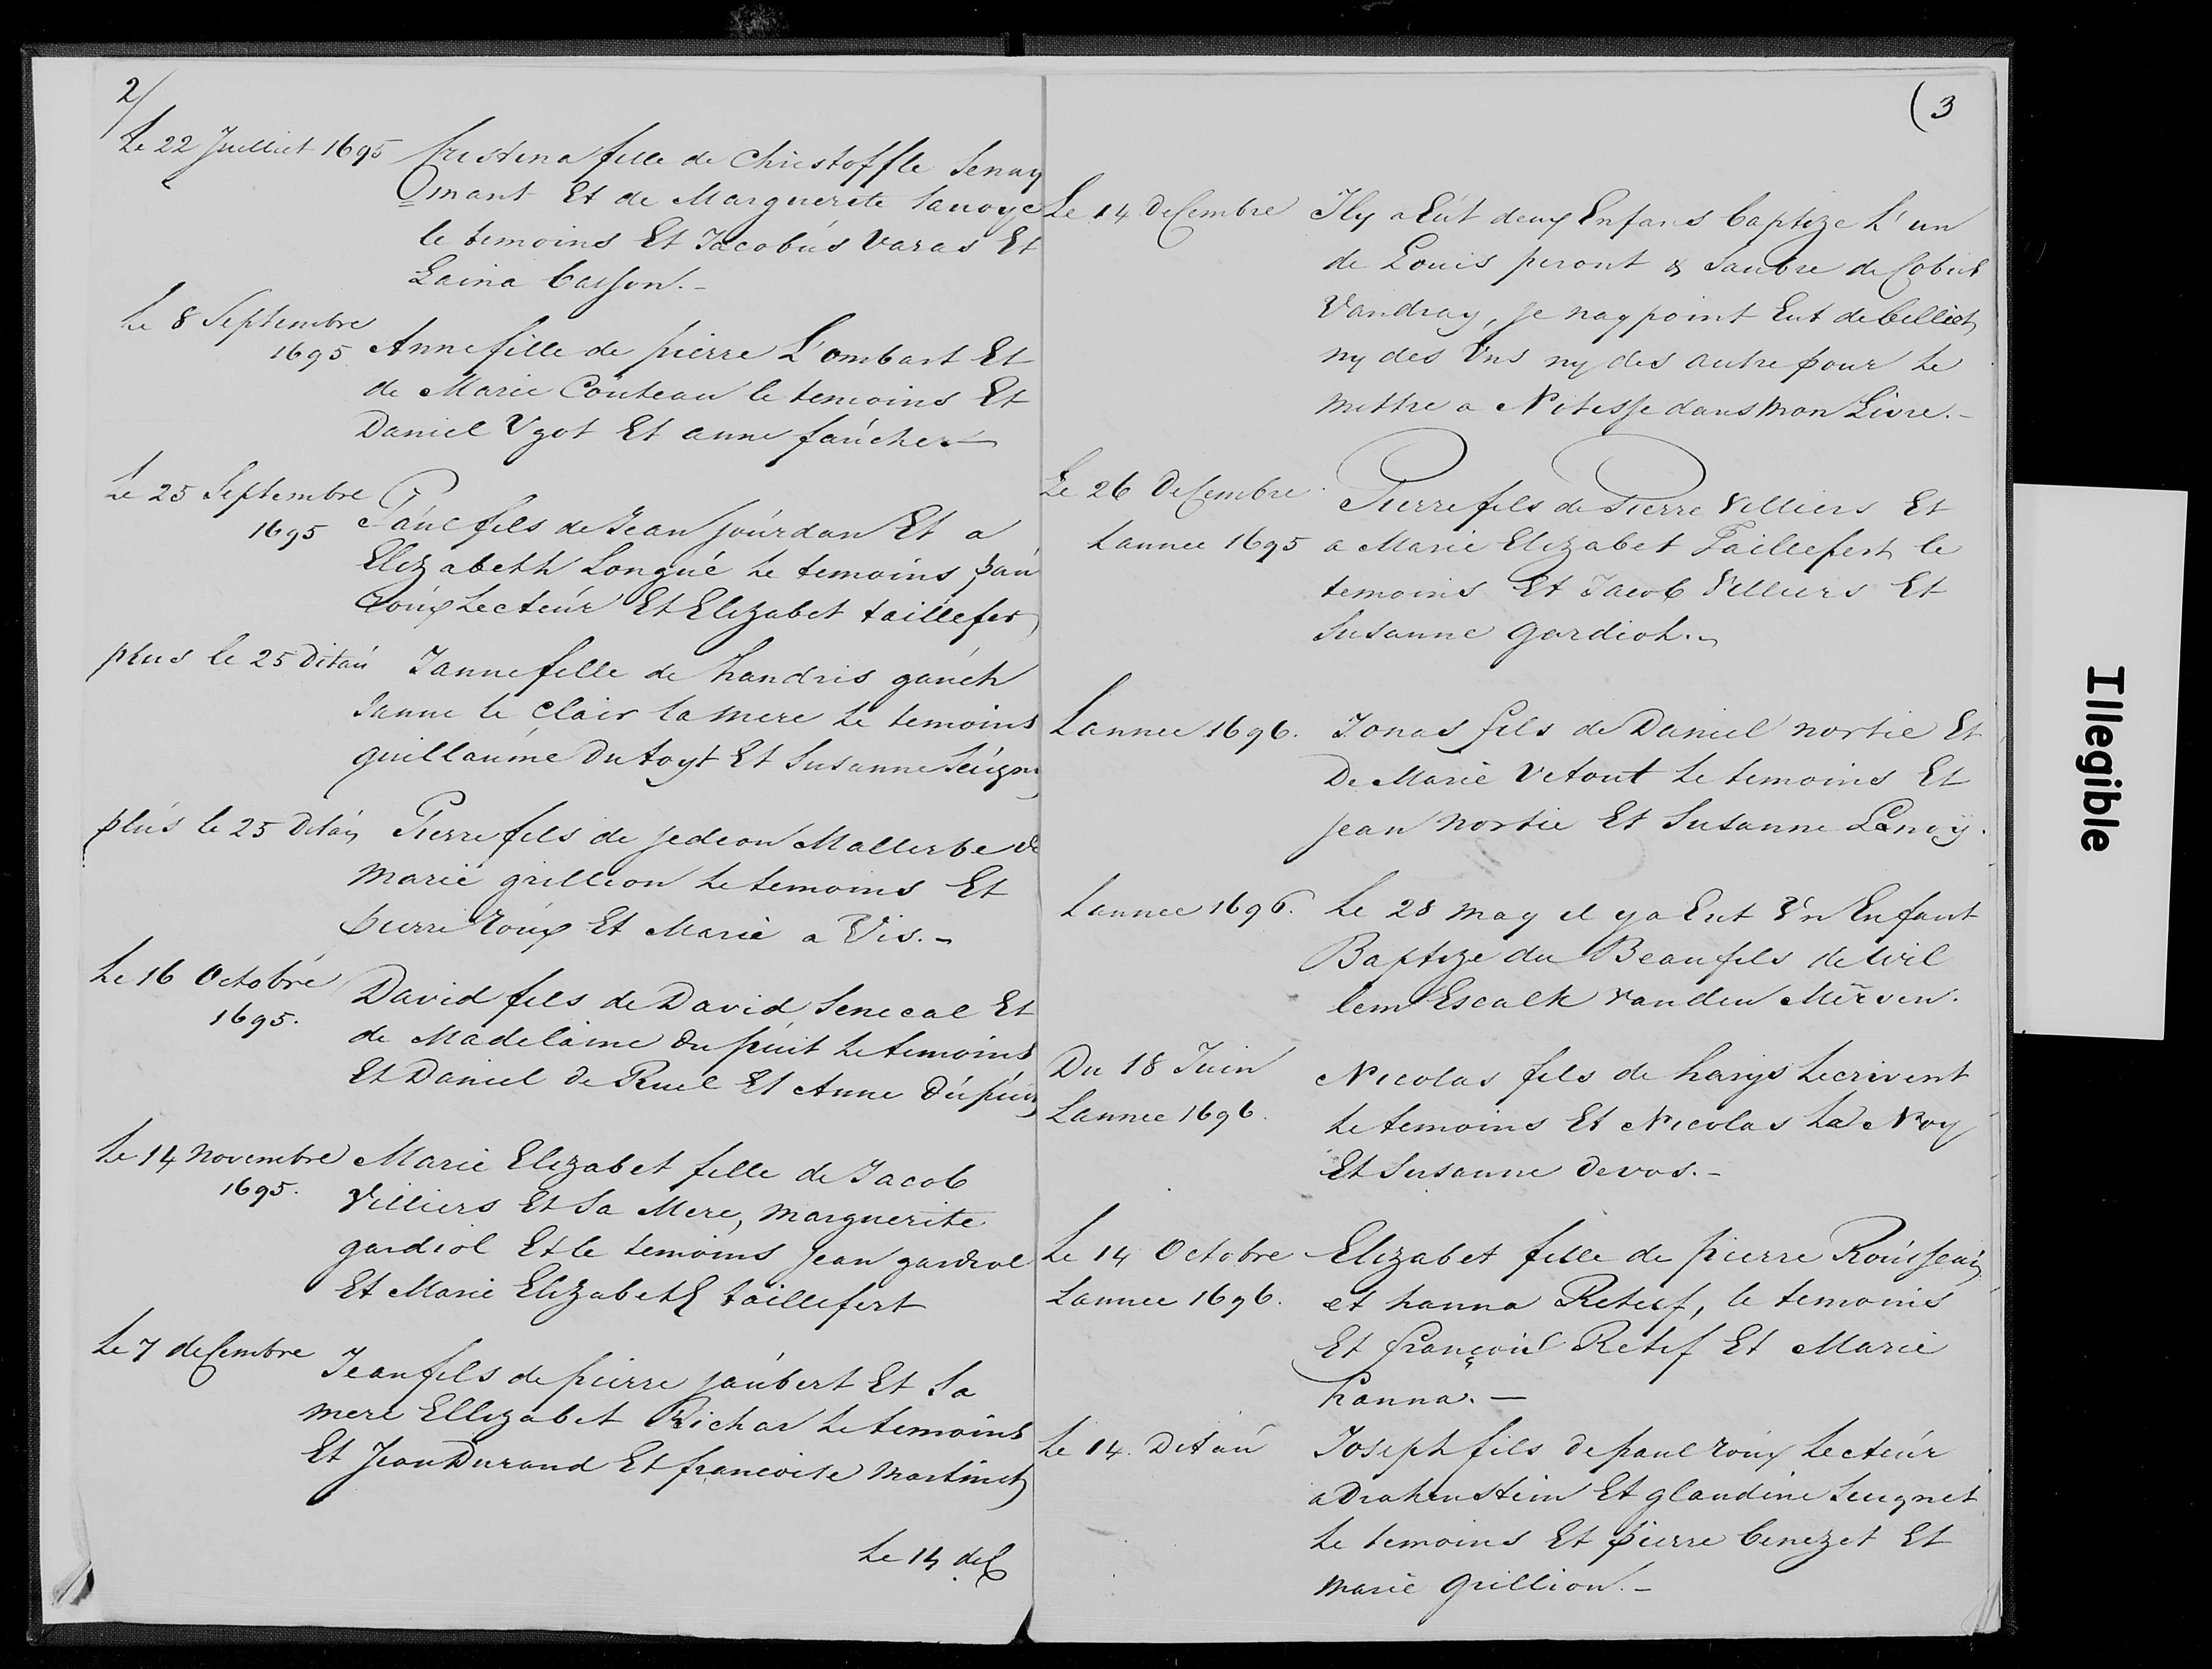 2/
Le 22 Juilliet 1695 Cristina fille de Christoffle Senay
Omant Et de Marguerite Savoye
le temoins Et Jacobus Varas Et
Laina Casson.-
Le 8 Septembre
1695 Anne fille de pierre L'ombart Et
de Marie Couteau le temoins Et
Daniel Ugot Et anne faucher.-
Le 25 Septembre
1695 Paul fils de Jean Jourdan Et a
Elizabeth Longué Le temoins pau
roux Lecteur Et Elizabet taillefer
plus le 25 Ditau Janne fille de handris gauch
Janne le Clair la mere Le temoins
guillaume Du toyt Et Susanne Seugne
plus le 25 Ditau Pierre fils de jedeon Mallerbe de
Marie grillion Le temoins Et
pierre roux Et Marie a Vis.-
Le 16 Octobre
1695. David fils de David Senecal Et
de Madelaine du puit Le temoins
Et Daniel de Ruel Et Anne Dupuis
Le 14 Novembre Marie Elizabet fille de Jacob
1695. Villiers Et Sa Mere, Marguerite
gardiol Et le temoins Jean gardiol
Et Marie Elizabeth taillefert
Le 7 decembre
Jean fils de pierre Jaubert Et Sa
mere Ellizabet Richar Le temoins
Et Jean Durand Et francoise Martinet
Le 14 dec
(3
Le 14 Decembre Il y a Eut deux Enfans baptize L'un
de Louis peront & Lautre de Cobus
Vandray, je nay point Eut de billiet
ny des Uns ny des autre pour Le
mettre a Notesse dans Mon Livre.-
Le 26 Decembre Pierre fils de Pierre Villiers Et
Lannee 1695 a Marie Elizabet Taillefert le
temoins Et Jacob Villiers Et
Susanne gardiol.
Lannee 1696. Jonas fils de Daniel nortie Et
De Marie Vetout Le temoins Et
Jean nortie Et Susanne Lanoy.
Lannee 1696. Le 28 may il ya Eut Un Enfant
Baptize du Beaufils de wil
lem Escalk vanden Merven.
Du 18 Juin Nicolas fils de harys Lecrivent
Lannee 1696. Le temoins Et Nicolas La Noy
Et Susanne devos.-
Le 14 Octobre Elizabet fille de pierre Rousseau
Lannee 1696. et hanna Retief, le temoins
Et françois Retif Et Marie
hanna.-
Le 14. Ditau Joseph fils de paul roux Lecteur
a Drakenstein Et glaudine Seugnet
Le temoins Et pierre benezet Et
marie Grillion.-
Illegible